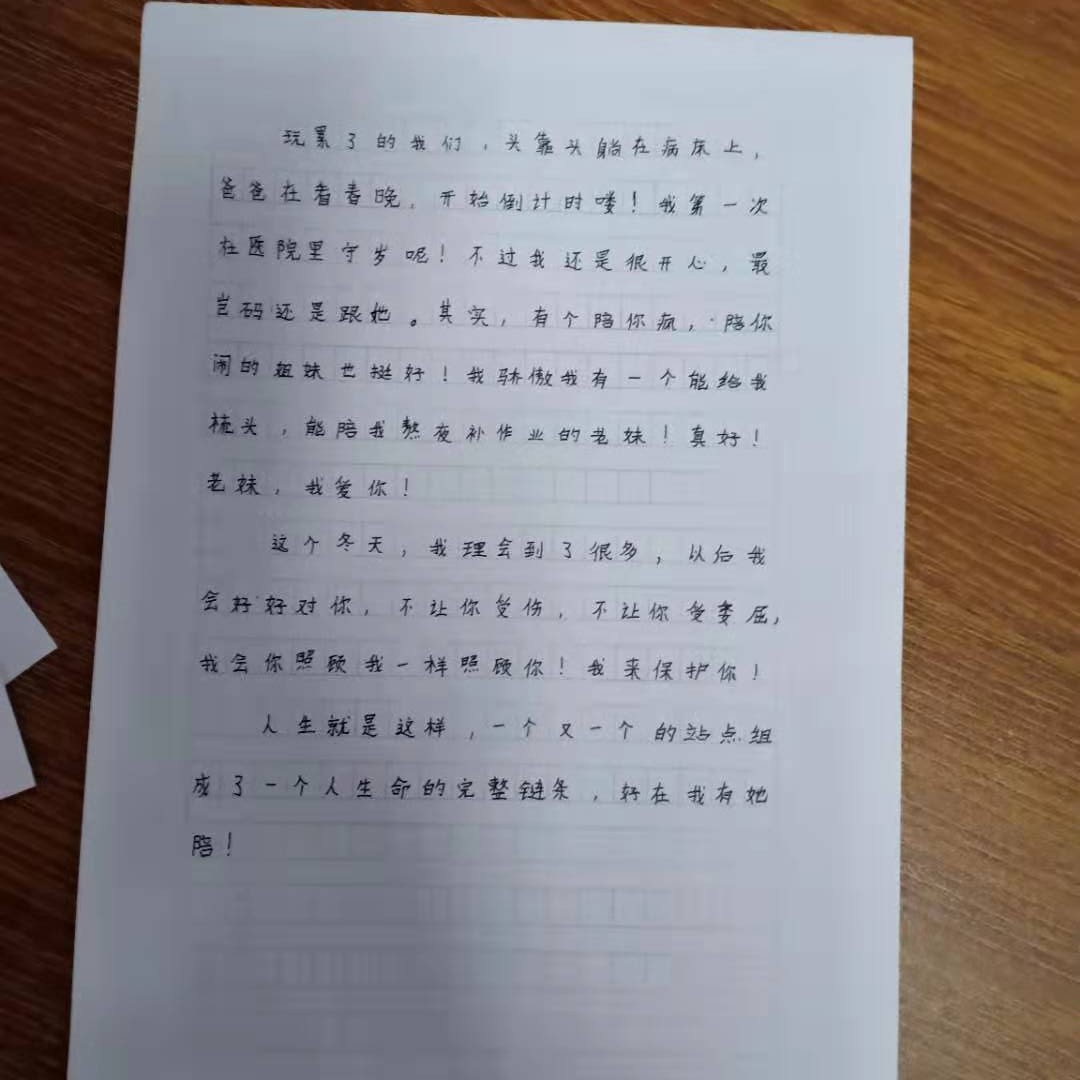 玩累了的我们，头靠头躺在病床上，
爸爸在看春晚。开始倒计时喽！我第一次
在医院里守岁呢！不过我还是很开心，最
起码还是跟她。其实，有个陪你疯，陪你
闹的姐妹也挺好！我骄傲我有一个能给我
梳头，能陪我熬夜补作业的老妹！真好！
老妹，我爱你！
这个冬天，我理会到了很多，以后我
会好好对你，不让你受伤，不让你受委屈，
我会你照顾我一样照顾你！我来保护你！
人生就是这样，一个又一个的站点组
成了一个人生命的完整链条，好在我有她
陪！